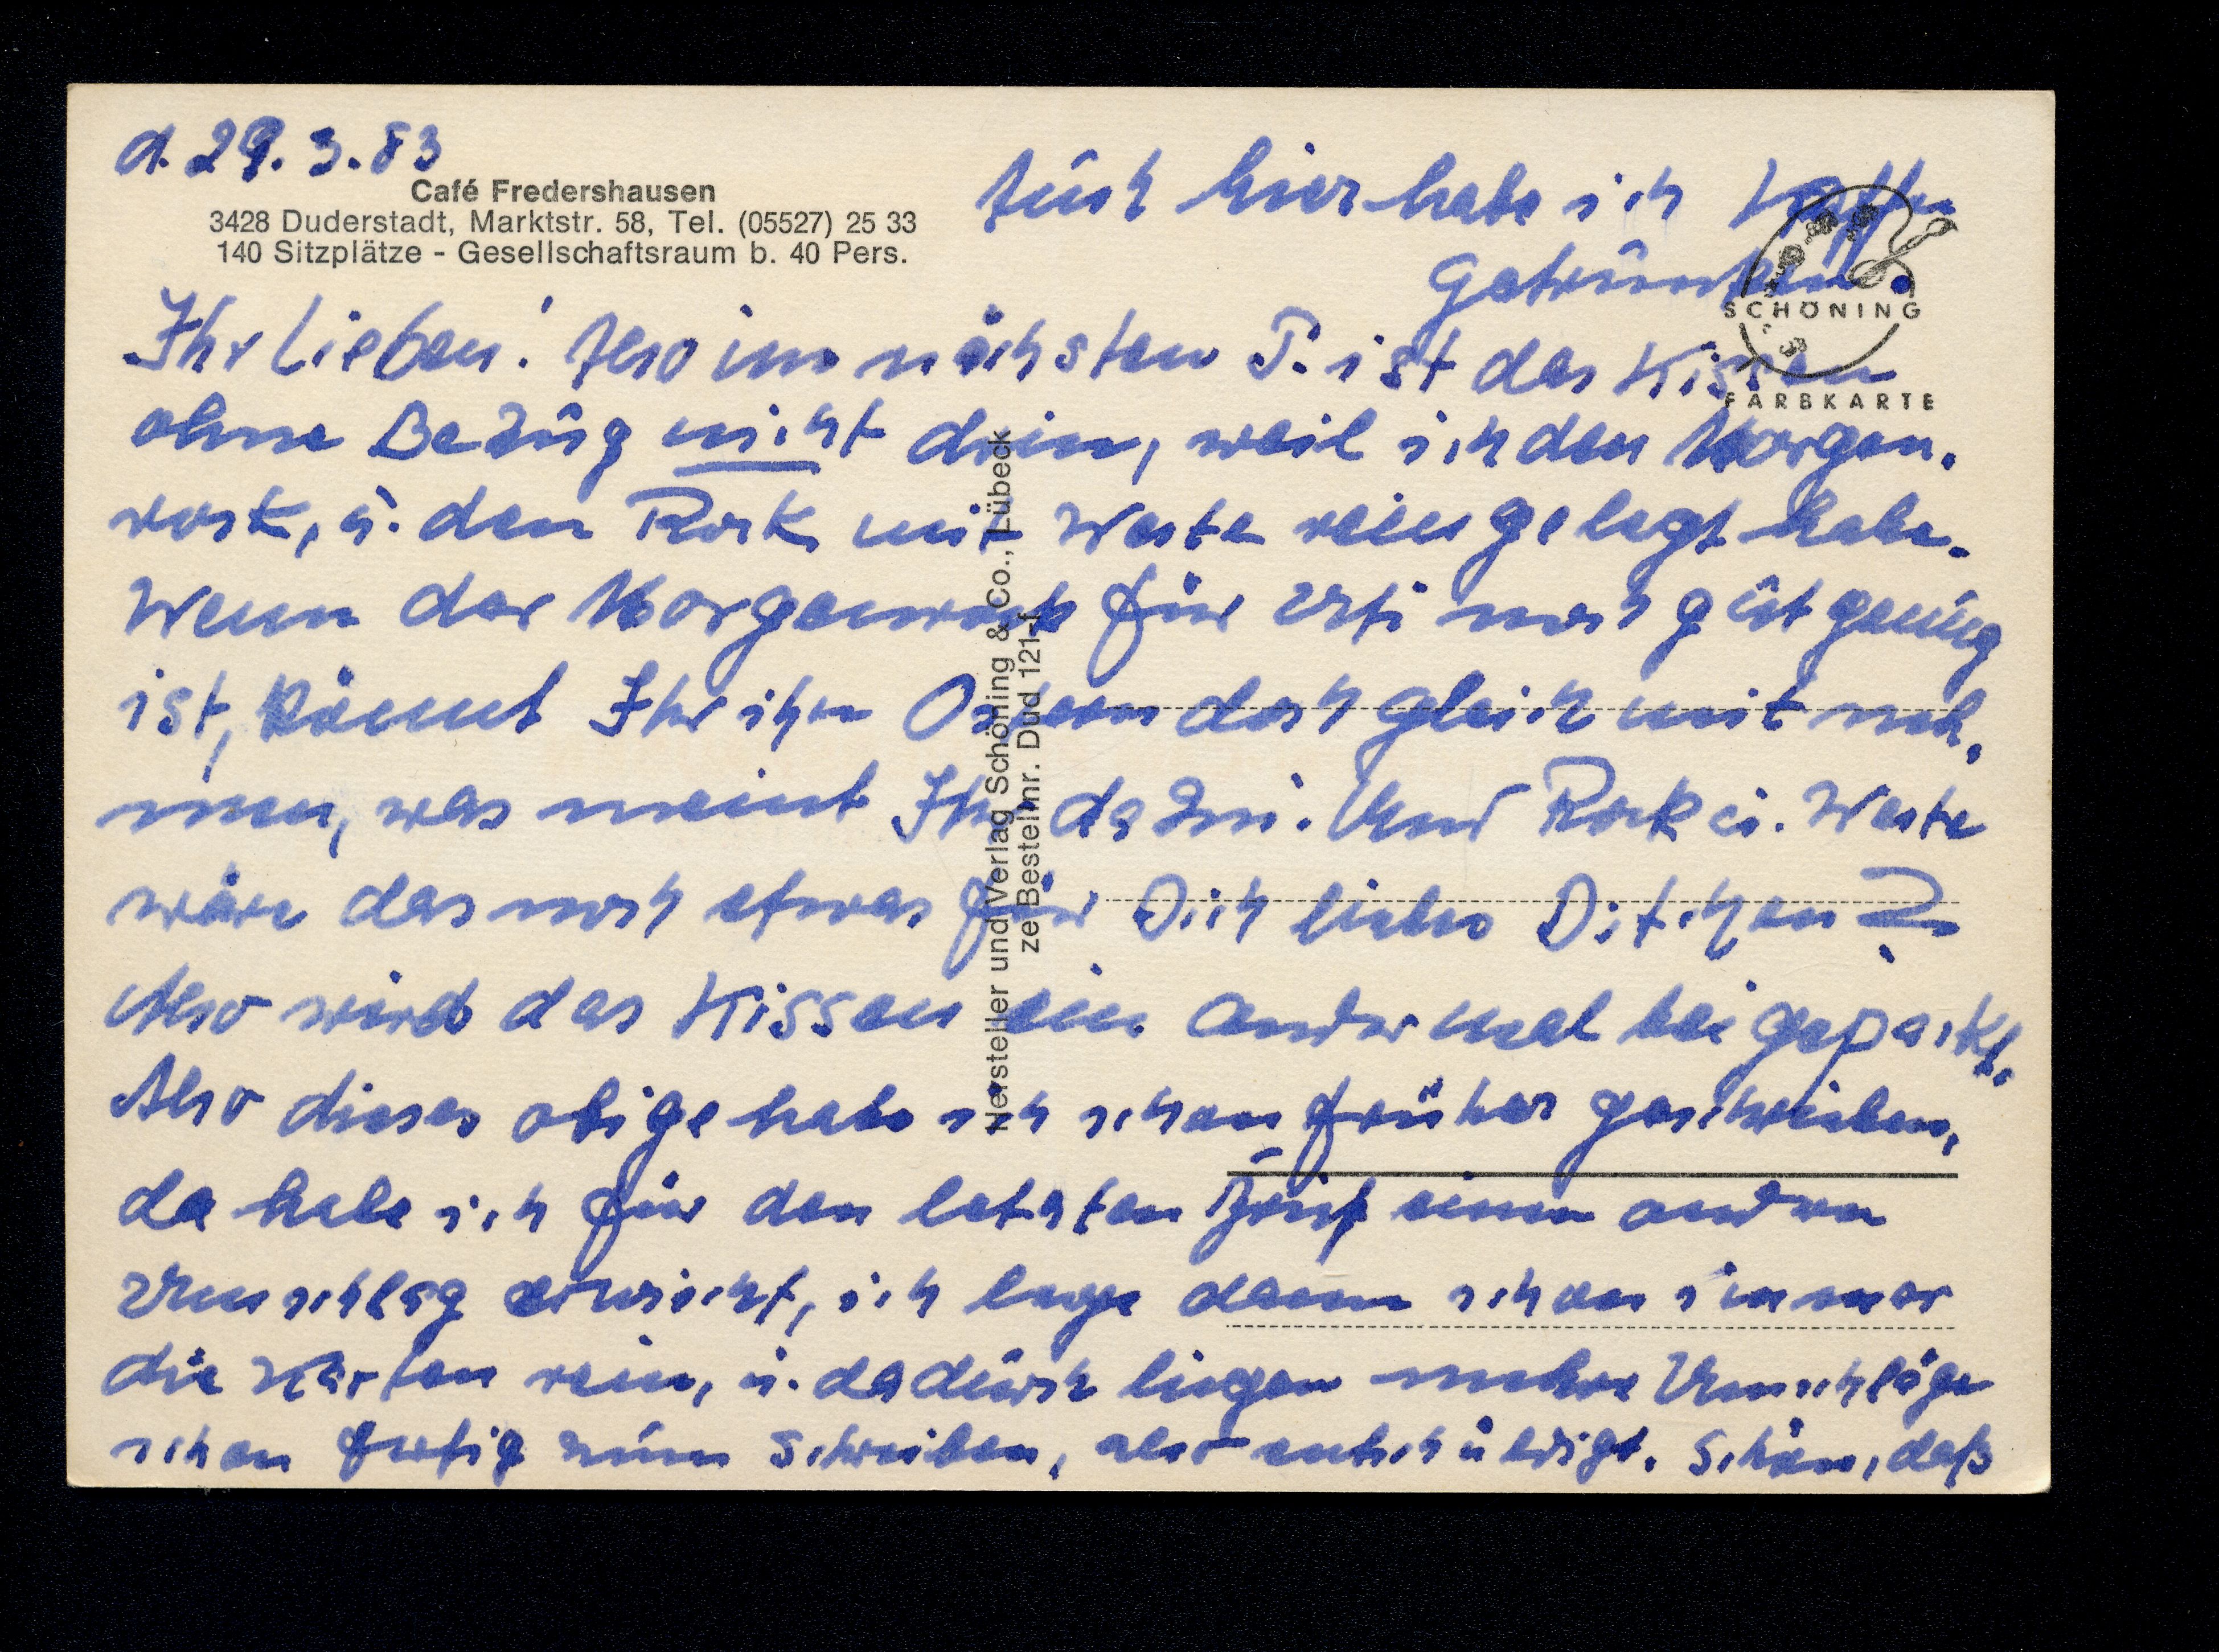 d. 29. 3. 83
Café Fredershausen
3428 Duderstadt, Marktstr. 58, Tel. (05527) 25 33
140 Sitzplätze - Gesellschaftsraum b. 40 Pers.
Auch hier habe ich Kaffee
getrunken.
SCHÖNING
FARBKARTE
Ihr Lieben! Also im nächsten P. ist das Kissen
ohne Bezug nicht drin, weil ich den Morgen-
rock, u. den Rock mit Weste reingelegt habe.
Wenn der Morgenrock für noch gut genug
ist, könnt Ihr ihn Ostern doch gleich mit neh-
men, was meint Ihr dazu. Und Rock u. Weste
wäre das noch etwas für Dich liebes Ditchen?
Also wird das Kissen ein andermal beigepackt.
Also dieses obige habe ich schon früher geschrieben,
da habe ich für den letzten einen andren
Umschlag erwischt, ich lege dann schon immer
die Karten rein, u. dadurch liegen mehre Umschläge
schon fertig zum Schreiben, also entschuldigt. Schön, daß
Hersteller und Verlag Schöning & Co., Lübeck
ze Bestellnr. Dud 121-f